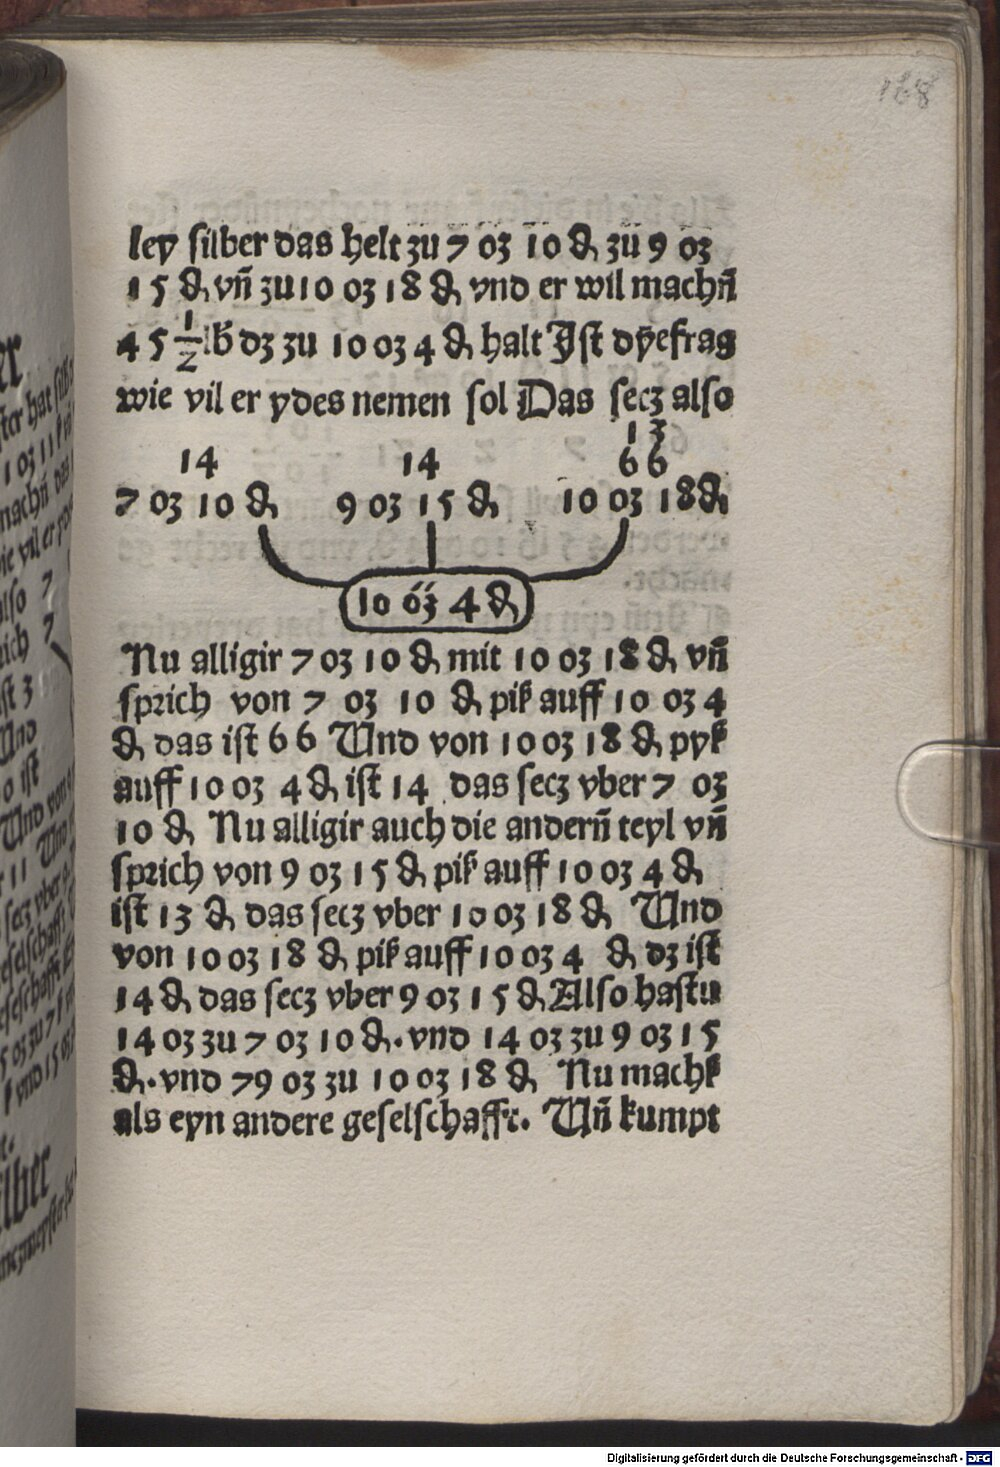 168
ley silber das helt zu 7 oz 10 ₰ zu 9 oz
15 ₰ vn̄ zu 10 oz 18 ₰ vnd er wil machn̄
45 1/2 lb̄ dz zu 10 oz 4 ₰ halt Ist dÿe frag
wie vil er ydes nemen sol Das secz also
13
14 14 66
7 oz 10 ₰ 9 oz 15 ₰ 10 oz 18 ₰
10 oz 4 ₰
Nu alligir 7 oz 10 ₰ mit 10 oz 18 ₰ vn̄
sprich von 7 oz 10 ₰ pik auff 10 oz 4
₰ das ist 66 Und von 10 oz 18 ₰ pyk
auff 10 oz 4 ₰ ist 14 das secz vber 7 oz
10 ₰ Nu alligir auch die andern̄ teyl vn̄
sprich von 9 oz 15 ₰ pik auff 10 oz 4 ₰
ist 13 ₰ das secz vber 10 oz 18 ₰ Und
von 10 oz 18 ₰ pik auff 10 oz 4 ₰ dz ist
14 ₰ das secz vber 9 oz 15 ₰ Also hastu
14 oz zu 7 oz 10 ₰. vnd 14 oz zu 9 oz 15
₰. vnd 79 oz zu 10 oz 18 ₰ Nu machk
als eyn andere geselschafft. Un̄ kumpt
Digitalisierung gefördert durch die Deutsche Forschungsgemeinschaft - DFG